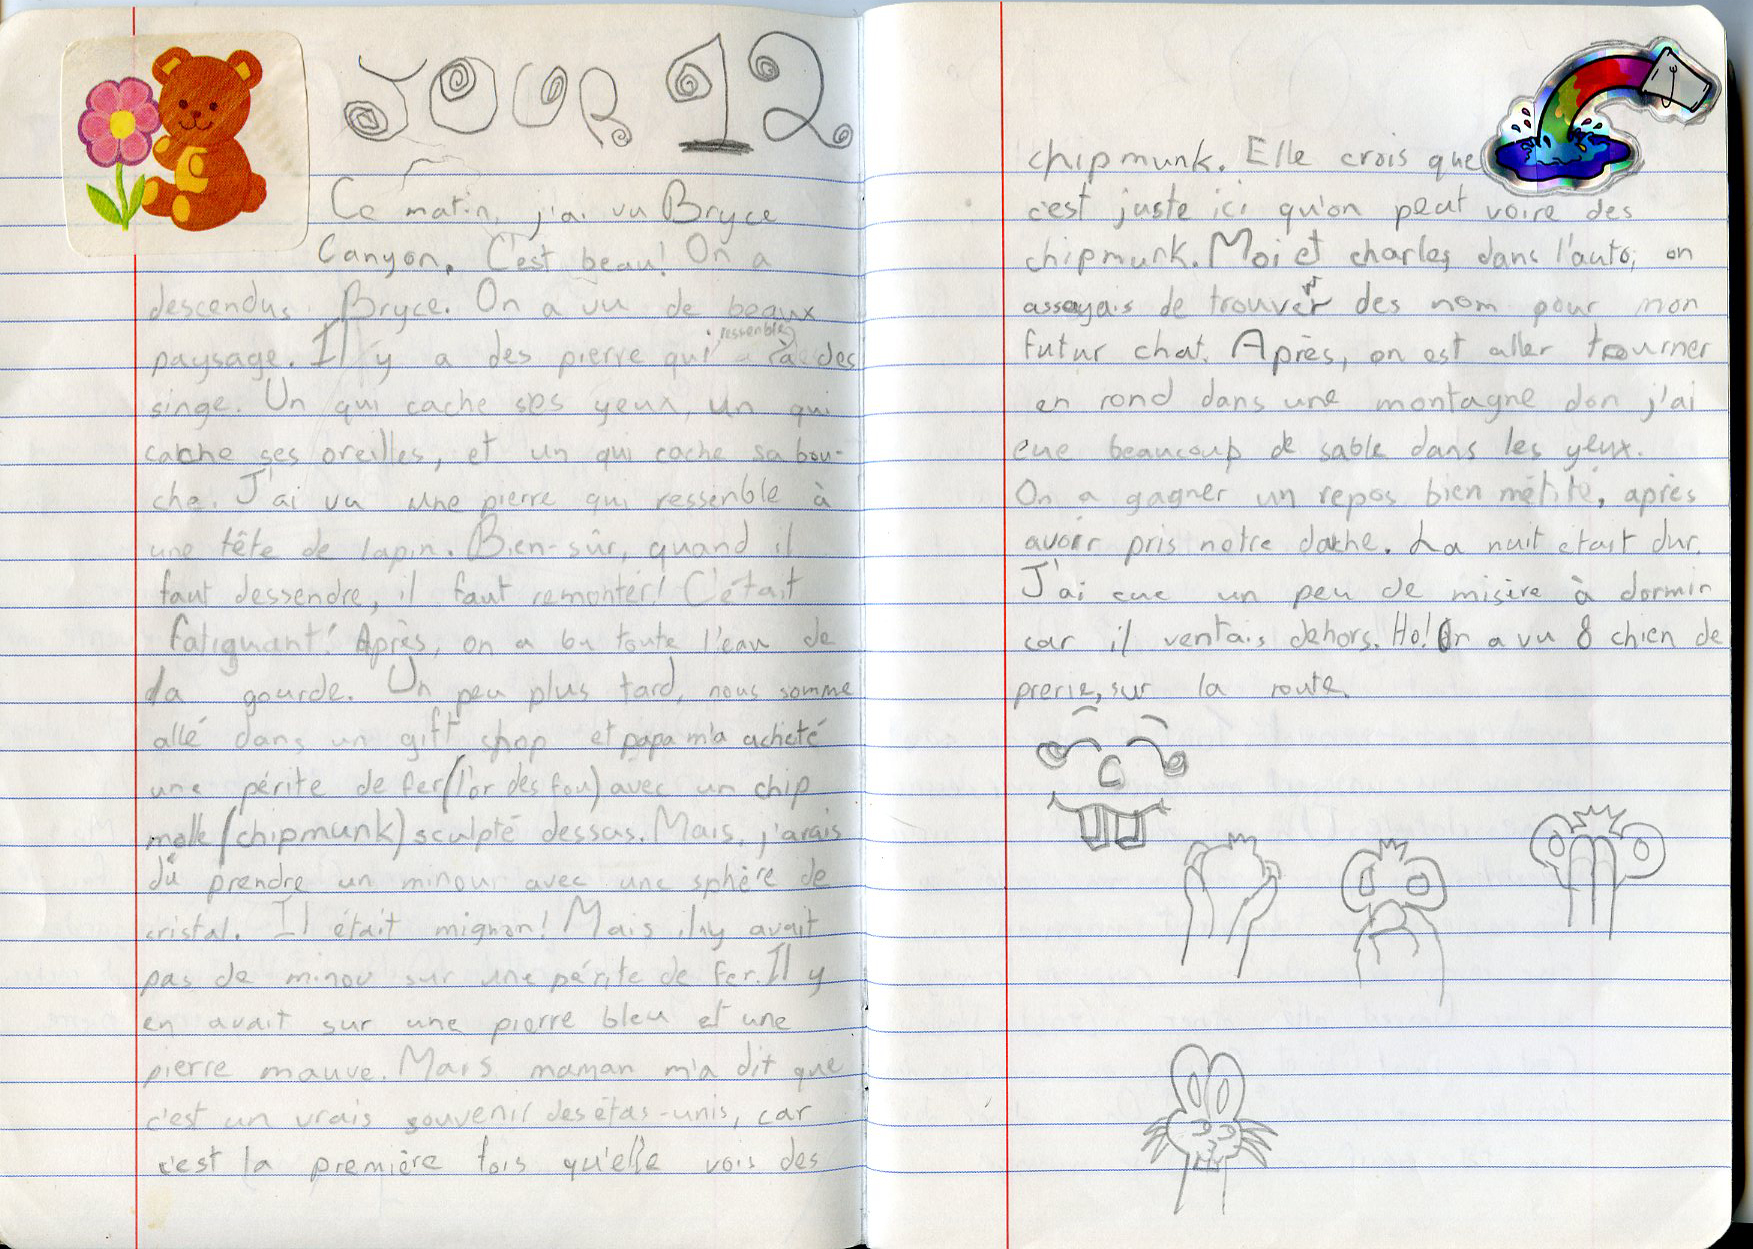 JOUR 12
Ce matin, j'ai vu Bryce
Canyon. C'est beau! On a
descendus Bryce. On a vu de beaux
paysage. Il y a des pierre qui ressemble à des
singe. Un qui cache ses yeux, un qui
cache ses oreilles, et un qui cache sa bou-
che. J'ai vu une pierre qui ressenble à
une tête de lapin. Bien-sûr, quand il
faut dessendre, il faut remonter! C'était
fatiguant! Après, on a bu toute l'eau de
la gourde. Un peu plus tard, nous somme
allé dans un gift shop et papa m'a acheté
une périte de fer (l'or des fou) avec un chip
molk (chipmunk) sculpté dessus. Mais, j'arais
dû prendre un minou avec une sphère de
cristal. Il était mignon! Mais il ny avait
pas de minou sur une périte de fer. Il y
en avait sur une pierre bleu et une
pierre mauve. Mais maman m'a dit que
c'est un vrais souvenir des étas-unis, car
c'est la première fois qu'elle vois des
chipmunk. Elle crois que
c'est juste ici qu'on peut voire des
chipmunk. Moi et charles, dans l'auto, on
assayais de trouver des nom pour mon
futur chat. Après, on est aller tourner
en rond dans une montagne don j'ai
eue beaucoup de sable dans les yeux.
On a gagner un repos bien mérité, après
avoir pris notre douche. La nuit etait dur.
J'ai eue un peu de misère à dormir
car il ventais dehors. Ho! On a vu 8 chien de
prerie, sur la route.